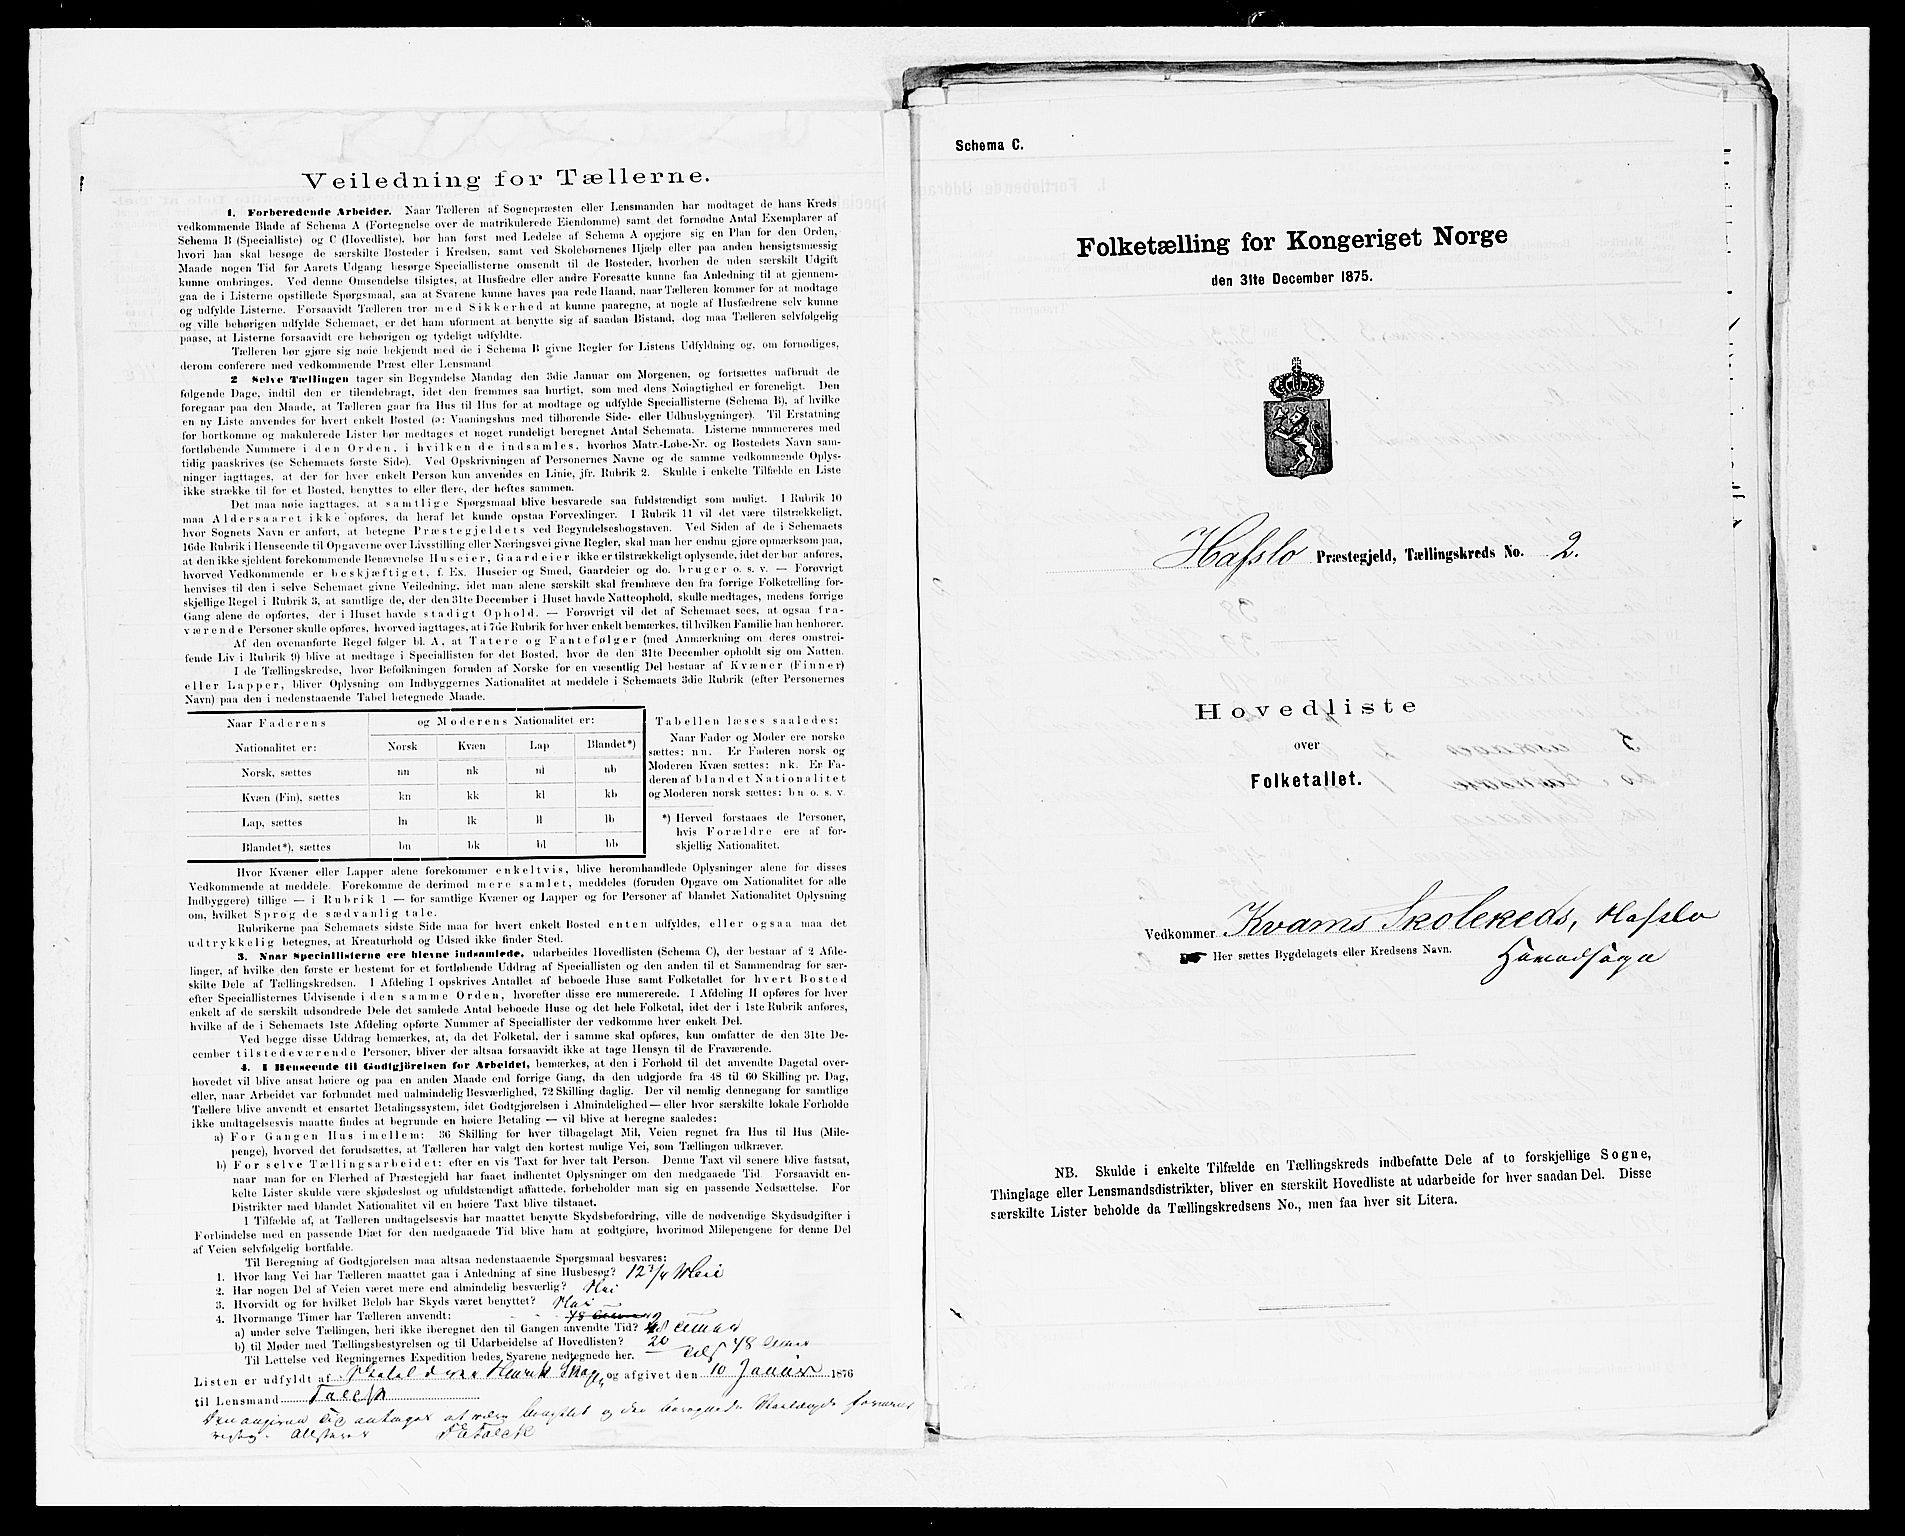 Veiledning for Tællerne.
1. Forberedende Arbeider. Naar Tælleren af Sognepræsten eller Lensmanden har modtaget de hans Kreds
vedkommende Blade af Schema A (Fortegnelse over de matrikulerede Eiendomme) samt det fornødne Antal Exemplarer af
Schema B (Specialliste) og C (Hovedliste), bør han først med Ledelse af Schema A opgjøre sig en Plan for den Orden,
hvori han skal besøge de særskilte Bosteder i Kredsen, samt ved Skolebørnenes Hjælp eller paa anden hensigtsmæssig
Maade nogen Tid før Aarets Udgang besørge Speciallisterne omsendt til de Bosteder, hvorhen de uden særskilt Udgift
kunne ombringes. Ved denne Omsendelse tilsigtes, at Husfædre eller andre Foresatte kunne faa Anledning til at gjennem-
gaa de i Listerne opstillede Spørgsmaal, saa at Svarene kunne haves paa rede Haand, naar Tælleren kommer for at modtage
og udfylde Listerne. Forsaavidt Tælleren tror med Sikkerhed at kunne paaregne, at nogle af Husfædrene selv kunne
og ville behørigen udfylde Schemaet, er det ham uforment at benytte sig af saadan Bistand, dog maa Tælleren selvfølgelig
paase, at Listerne forsaavidt ere behørigen og tydeligt udfyldte.
Tælleren bør gjøre sig nøie bekjendt med de i Schema B givne Regler for Listens Udfyldning og, om fornødiges,
derom conferere med vedkommende Præst eller Lensmand.
2 Selve Tællingen tager sin Begyndelse Mandag den 3die Januar om Morgenen, og fortsættes uafbrudt de
følgende Dage, indtil den er tilendebragt, idet den fremmes saa hurtigt, som med dens Nøiagtighed er foreneligt. Den
foregaar paa den Maade, at Tælleren gaar fra Hus til Hus for at modtage og udfylde Speciallisterne (Schema B), af hvilke
en ny Liste anvendes for hvert enkelt Bosted (ɔ: Vaaningshus med tilhørende Side- eller Udhusbygninger). Til Erstatning
for bortkomne og makulerede Lister bør medtages et noget rundeligt beregnet Antal Schemata. Listerne nummereres med
fortløbende Nummere i den Orden, i hvilken de indsamles, hvorhos Matr.-Løbe-Nr. og Bostedets Navn sam-
tidig paaskrives (se Schemaets første Side). Ved Opskrivningen af Personernes Navne og de samme vedkommende Oplys-
ninger iagttages, at der for hver enkelt Person kun anvendes en Linie, jfr. Rubrik 2. Skulde i enkelte Tilfælde en Liste
ikke strække til for et Bosted, benyttes to eller flere, der heftes sammen.
Det maa nøie iagttages, at samtlige Spørgsmaal blive besvarede saa fuldstændigt som muligt. I Rubrik 10
maa Aldersaaret ikke opføres, da heraf let kunde opstaa Forvexlinger. I Rubrik 11 vil det være tilstrækkeligt,
hvor Sognets Navn er anført, at betegne Præstegjeldets ved Begyndelsesbogstaven. Ved Siden af de i Schemaets
16de Rubrik i Henseende til Opgaverne over Livsstilling eller Næringsvei givne Regler, skal man her endnu gjøre opmærksom paa,
at den ikke sjeldent forekommende Benævnelse Huseier, Gaardeier ikke er tilstrækkeligt oplysende, idet der bør anføres,
hvorved Vedkommende er beskjæftiget, f. Ex. Huseier og Smed, Gaardeier og do. bruger o. s. v. — Forøvrigt
henvises til den i selve Schemaet givne Veiledning, idet man alene særskilt skal fremhæve den fra forrige Folketælling for-
skjellige Regel i Rubrik 3, at samtlige de, der den 31te December i Huset havde Natteophold, skulle medtages, medens forrige
Gang alene de opførtes, der i Huset havde stadigt Ophold. — Forøvrigt vil det af Schemaet sees, at ogsaa fra-
værende Personer skulle opføres, hvorved iagttages, at i 7de Rubrik for hver enkelt bemærkes, til hvilken Familie han henhører.
Af den ovenanførte Regel følger bl. A., at Tatere og Fantefølger (med Anmærkning om deres omstrei-
fende Liv i Rubrik 9) blive at medtage i Speciallisten for det Bosted, hvor de den 31te December opholdt sig om Natten.
I de Tællingskredse, hvor Befolkningen foruden af Norske for en væsentlig Del bestaar af Kvæner (Finner)
eller Lapper, bliver Oplysning om Indbyggernes Nationalitet at meddele i Schemaets 3die Rubrik (efter Personernes
Navn) paa den i nedenstaaende Tabel betegnede Maade.
Naar Faderens og Moderens Nationalitet er:
Nationalitet er: Norsk Kvæn Lap Blandet*)
Norsk, sættes nn nk nl nb
Kvæn (Fin), sættes kn kk kl kb
Lap, sættes ln lk ll lb
Blandet*), sættes bn bk bl bb
Tabellen læses saaledes:
Naar Fader og Moder ere norske
sættes: nn. Er Faderen norsk og
Moderen Kvæn sættes: nk. Er Fa-
deren af blandet Nationalitet
og Moderen norsk sættes: bn o. s. v.
*) Herved forstaaes de Personer,
hvis Forældre ere af for-
skjellig Nationalitet.
Hvor Kvæner eller Lapper alene forekommer enkeltvis, blive heromhandlede Oplysninger alene for disses
Vedkommende at meddele. Forekomme de derimod mere samlet, meddeles (foruden Opgave om Nationalitet for alle
Indbyggere) tillige — i Rubrik 1 — for samtlige Kvæner og Lapper og for Personer af blandet Nationalitet Oplysning
om, hvilket Sprog de sædvanlig tale.
Rubrikerne paa Schemaets sidste Side maa for hvert enkelt Bosted enten udfyldes, eller ogsaa maa det
udtrykkelig betegnes, at Kreaturhold og Udsæd ikke finder Sted.
3. Naar Speciallisterne ere blevne indsamlede, udarbeides Hovedlisten (Schema C), der bestaar af 2 Afde-
linger, af hvilke den første er bestemt for et fortløbende Uddrag af Speciallisten og den anden til et Sammendrag for sær-
skilte Dele af Tællingskredsen. I Afdeling I opskrives Antallet af beboede Huse samt Folketallet for hvert Bosted
efter Speciallisternes Udvisende i den samme Orden, hvorefter disse ere numererede. I Afdeling II opføres for hver
enkelt af de særskilt udsondrede Dele det samlede Antal beboede Huse og det hele Folketal, idet der i 1ste Rubrik anføres,
hvilke af de i Schemaets 1ste Afdeling opførte Nummer af Speciallister der vedkomme hver enkelt Del.
Ved begge disse Uddrag bemærkes, at, da det Folketal, der i samme skal opføres, kun omfatter de den 31te De-
cember tilstedeværende Personer, bliver der altsaa forsaavidt ikke at tage Hensyn til de Fraværende.
4. I Henseende til Godtgjørelsen for Arbeidet, bemærkes, at den i Forhold til det anvendte Dagetal over-
hovedet vil blive ansat høiere og paa en anden Maade end forrige Gang, da den udgjorde fra 48 til 60 Skilling pr. Dag,
eller, naar Arbeidet var forbundet med ualmindelig Besværlighed, 72 Skilling daglig. Der vil nemlig dennegang for samtlige
Tællere blive anvendt et ensartet Betalingssystem, idet Godtgjørelsen i Almindelighed — eller hvor særskilte lokale Forholde
ikke undtagelsesvis maatte findes at begrunde en høiere Betaling — vil blive at beregne saaledes:
a) For Gangen Hus imellem: 36 Skilling for hver tilbagelagt Mil, Veien regnet fra Hus til Hus (Mile-
penge), hvorved det forudsættes, at Tælleren har valgt den kortest mulige Vei, som Tællingen udkræver.
b) For selve Tællingsarbeidet: efter en vis Taxt for hver talt Person. Denne Taxt vil senere blive fastsat,
naar man for en Flerhed af Præstegjeld har faaet indhentet Oplysninger om den medgaaede Tid. Forsaavidt en-
kelte Lister skulde være skjødesløst og ufuldstændigt affattede, forbeholder man sig en passende Nedsættelse. For
Distrikter med blandet Nationalitet vil en høiere Taxt blive tilstaaet.
I Tilfælde af, at Tælleren undtagelsesvis har maattet benytte Skydsbefordring, ville de nødvendige Skydsudgifter i
Forbindelse med en passende Diæt for den medgaaede Tid blive ham at godtgjøre, hvorimod Milepengene for denne Del
af Veien selvfølgelig bortfalde.
Til Beregning af Godtgjørelsen maa altsaa nedenstaaende Spørgsmaal besvares:
1. Hvor lang Vei har Tælleren maattet gaa i Anledning af sine Husbesøg? 12 3/4
2. Har nogen Del af Veien været mere end almindelig besværlig? Nei
3. Hvorvidt og for hvilket Beløb har Skyds været benyttet? Nei
4. Hvormange Timer har Tælleren anvendt:
a) under selve Tællingen, heri ikke iberegnet den til Gangen anvendte Tid? Timer
b) til Møder med Tællingsbestyrelsen og til Udarbeidelse af Hovedlisten? 20
48 Timer
Til Lettelse ved Regningernes Expedition bedes Svarene nedtegnede her.
Listen er udfyldt af Henrik og afgivet den 10 Januar 1876
til Lensmand Falck
Falck
Schema C.
Folketælling for Kongeriget Norge
den 31te December 1875.
Hafslo Præstegjeld, Tællingskreds No. 2.
Hovedliste
over
Folketallet.
Vedkommer Kvams Skolekreds, Hafslo
Her sættes Bygdelagets eller Kredsens Navn. Hovedsogn
NB. Skulde i enkelte Tilfælde en Tællingskreds indbefatte Dele af to forskjellige Sogne,
Thinglage eller Lensmandsdistrikter, bliver en særskilt Hovedliste at udarbeide for hver saadan Del. Disse
særskilte Lister beholde da Tællingskredsens No., men faa hver sit Litera.